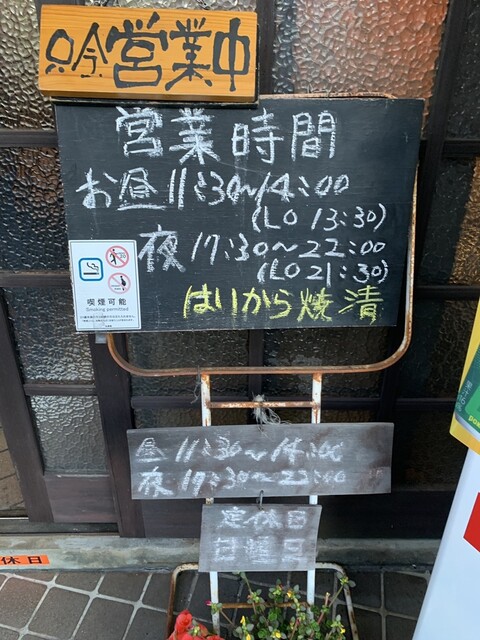 只今営業中
営業時間
お昼 11:30~14:00
(LO 13:30)
夜 17:30~22:00
(LO 21:30)
はりから焼 清
喫煙可能
Smoking permitted
昼 11:30~14:00
夜 17:30~22:00
定休日
日曜日
休日